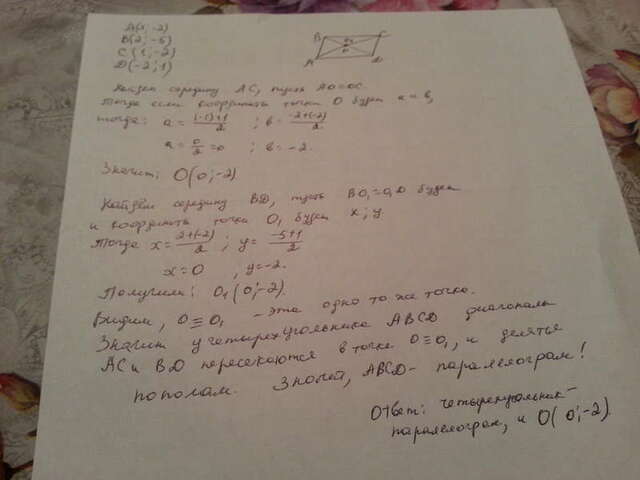 A(1; -2)
B(2; -5)
C(1; -2)
D(-2; 1)
B C
O
A D
Найдем середину AC, пусть AO=OC.
Тогда если координаты точки O будем a и b,
тогда: a = (-1)+1/2 ; b = -2+(-2)/2.
a = 0/2 = 0 ; b = -2.
Значит: O(0; -2)
Найдём середину BD, пусть BO₁=O₁D будет
и координаты точки O₁ будем x; y.
Тогда x = 2+(-2)/2 ; y = -5+1/2
x=0 , y=-2.
Получили: O₁(0; -2).
Видим, O≡O₁ - эта одно то же точка.
Значит у четырехугольника ABCD диагонали
AC и BD пересекаются в точке O≡O₁, и делятся
пополам. Значит, ABCD - паралелограм!
Ответ: четырехугольник-
паралелограм, и O(0; -2).